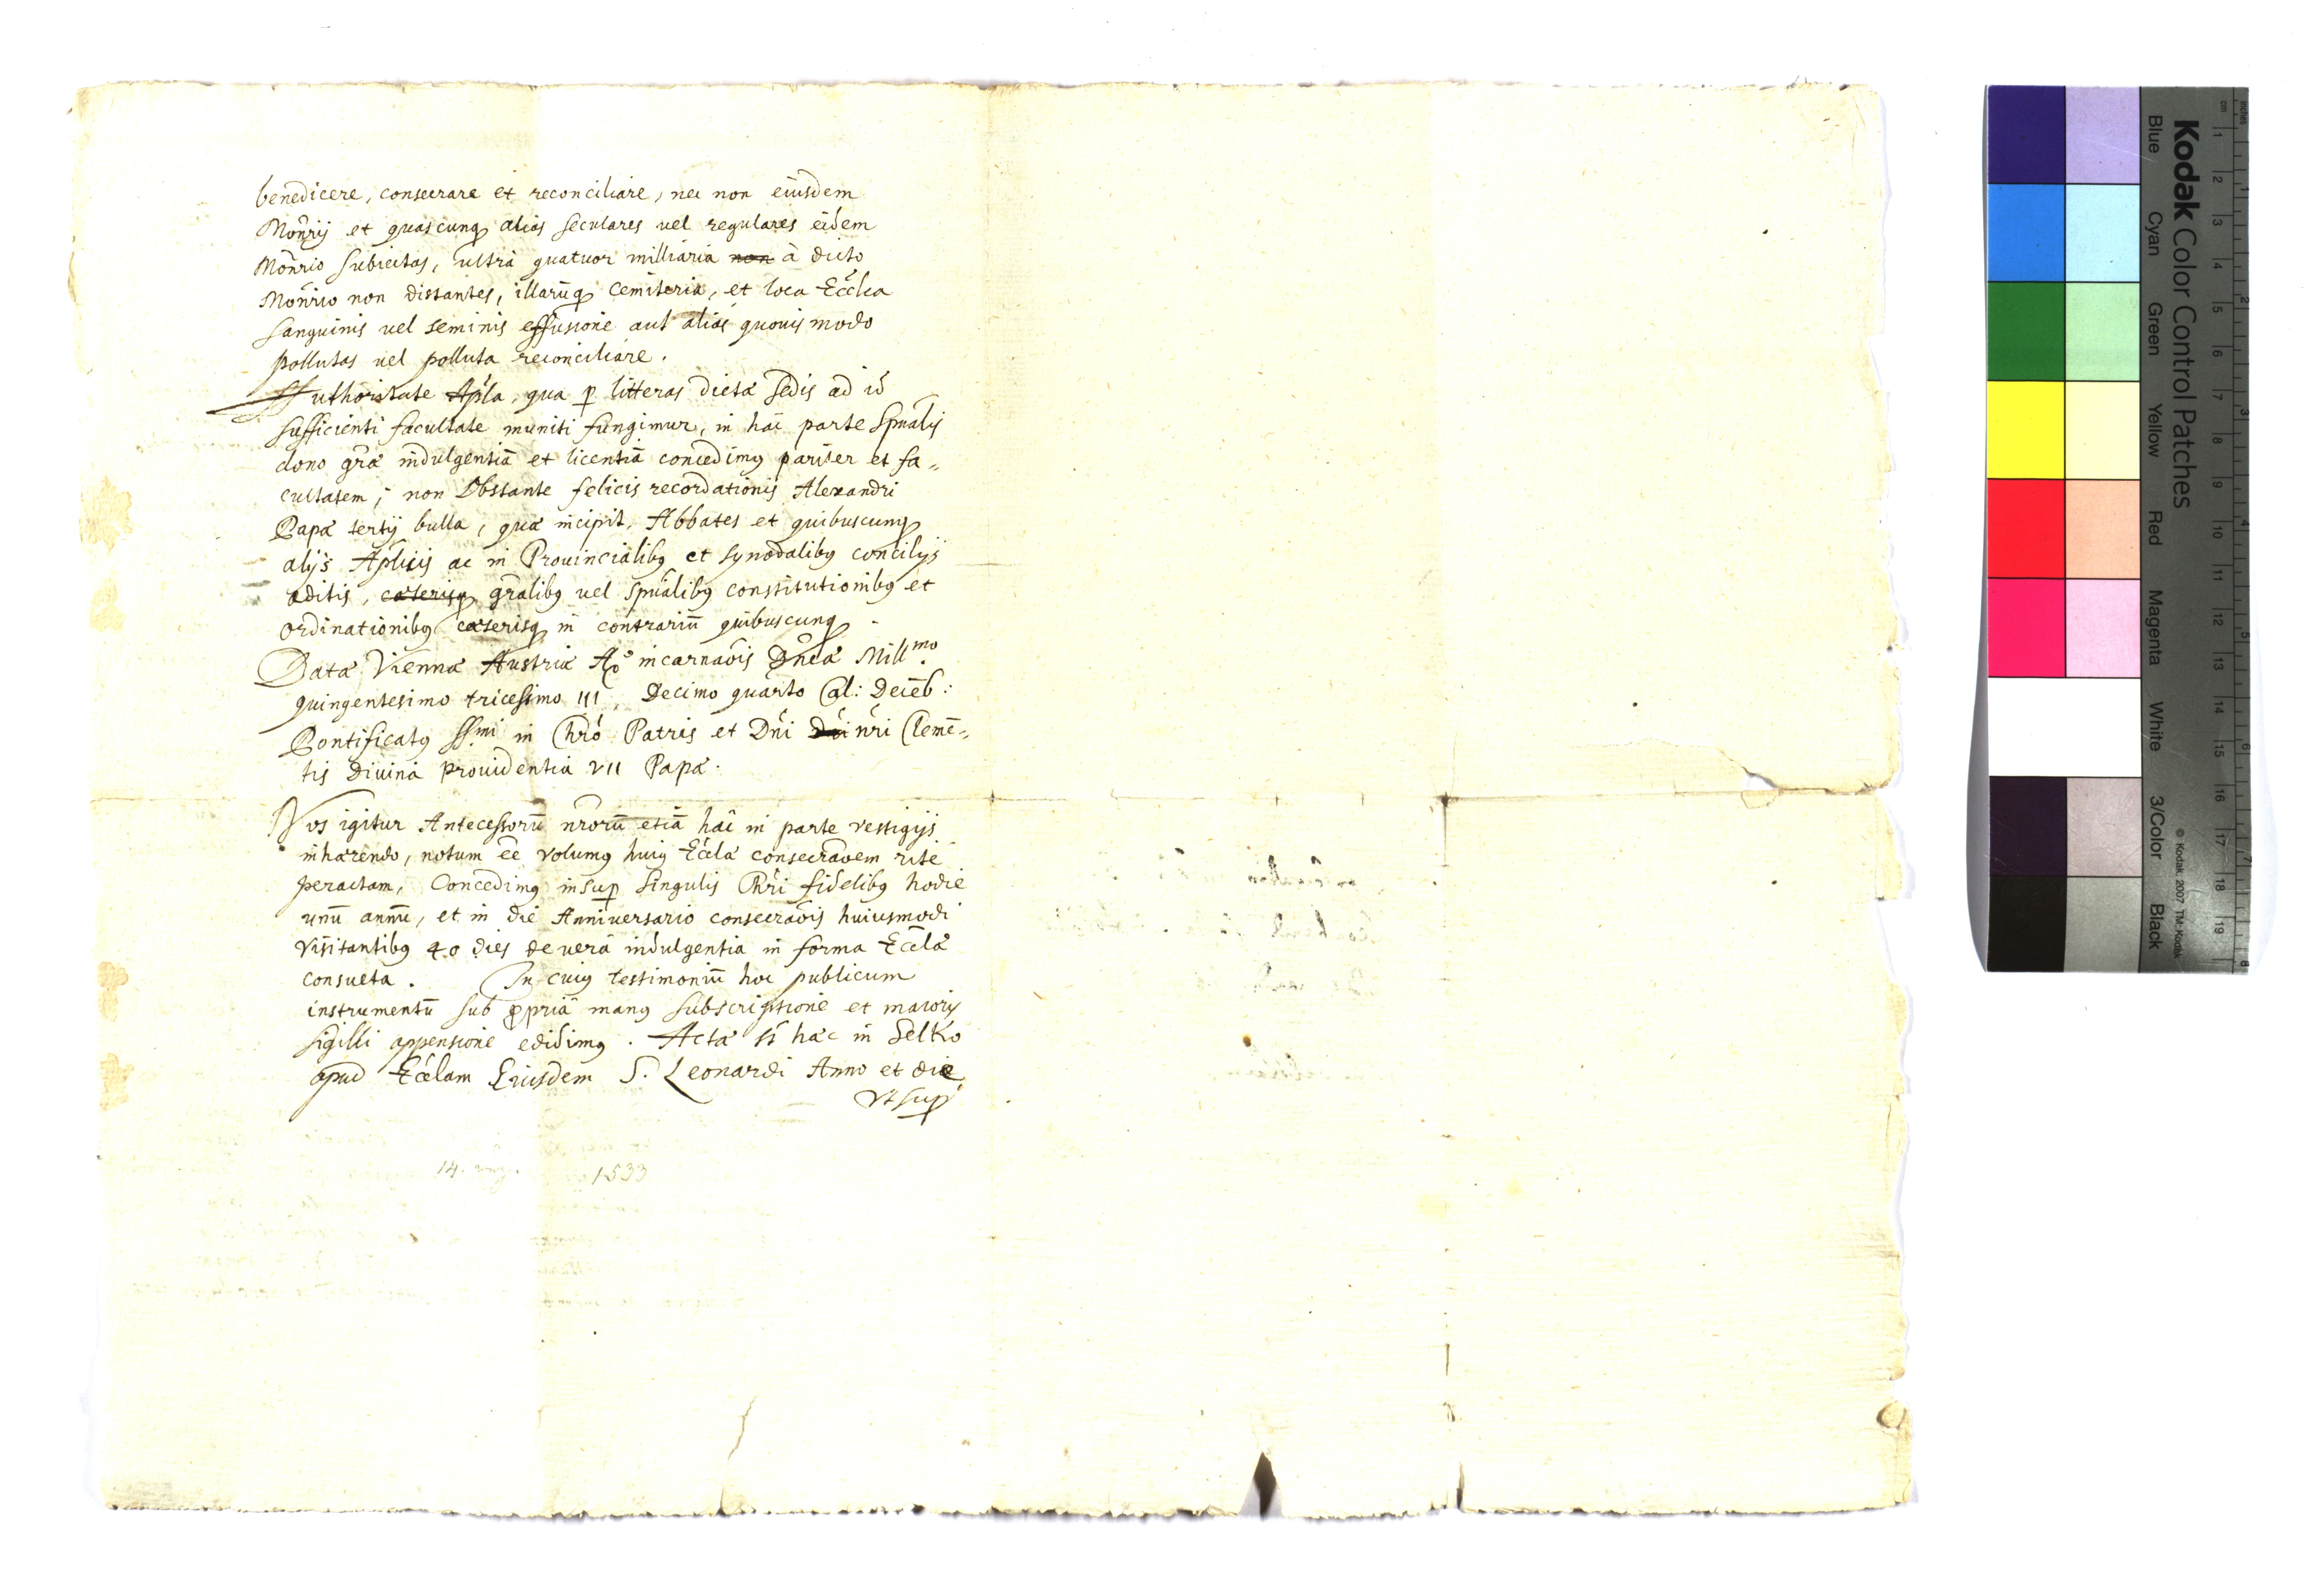 benedicere, consecrare et reconciliare, nec non eiusdem
Mon̄rij et quascunq̨ alias seculares uel regulares eidem
Mon̄rio subiectas, ultra quatuor milliaria non à dicto
Mon̄rio non distantes, illarūq̨ Cemiteria, et loca Ecc̄lica
sanguinis uel seminis effusione aut alias quouis modo
pollutas uel polluta reconciliare.
Authoritate Ap̄la, qua ꝑ litteras dictæ sedis ad id
sufficienti facultate muniti fungimur, in hac parte Sp̄ualis
dono grā indulgentiā et licentiā concedimꝰ pariter et fa„
cultatem; non Obstante felicis recordationis Alexandri
Papæ tertij bulla, quæ incipit, Abbates et quibuscumq̨
alijs Ap̄licis ac in Prouincialibꝰ et synodalibꝰ concilijs
æditis, cæterisq̨ gn̄ralibꝰ uel sp̄ualibꝰ constitutionibꝰ et
ordinationibꝰ cæterisq̨ in contrariū quibuscunq̨.
Data Viennæ Austriæ Aō incarnaōis Dn̄cæ Mill.mo
quingentesimo tricesimo III, Decimo quarto Cal: Decēb:
Pontificatꝰ SS.mi in Chrō Patris et Dn̄i Dn̄i nr̄i Clemē„
tis diuina prouidentia VII Papæ.
Nos igitur Antecessorū nr̄orū etiā hac in parte vestigijs
inhærendo, notum eē volumꝰ huiꝰ Eccl̄æ consecraōem rite
peractam, Concedimꝰ insuꝑ singulis Chr̄i fidelibꝰ hodie
unū annū, et in die Anniversario consecraōis huiusmodi
visitantibꝰ 40 dies de vera indulgentia in forma Eccl̄æ
consueta. In cuiꝰ testimoniū hoc publicum
instrumentū sub ꝓpria manꝰ subscriptione et maioris
sigilli appensione edidimꝰ. Acta st̄ hæc in Selko
apud Eccl̄am Eiusdem S. Leonardi Anno et die
Vt suꝑ
14. 1533